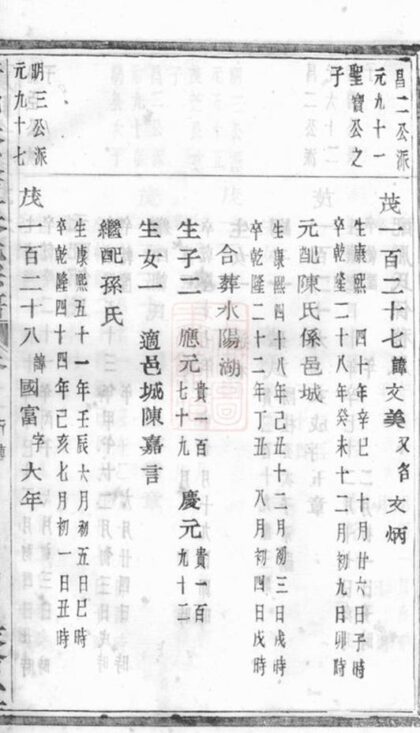 昌二公派
元九十一
聖寶公之
子
茂一百二十七諱文義又名文炳
生康熙四十年辛巳十月廿六日子時
卒乾隆二十八年癸未十二月初九日卯時
元配陳氏係邑城
生康熙四十八年己丑十二月初三日戌時
卒乾隆二十二年丁丑八月初四日戌時
合葬水陽湖
生子二應元貴一百七十九慶元貴一百九十二
生女一適邑城陳嘉言
繼配孫氏
生康熙五十一年壬辰六月初五日巳時
卒乾隆四十四年己亥七月初一日丑時
明三公派
元九十七
茂一百二十八諱國富字大年